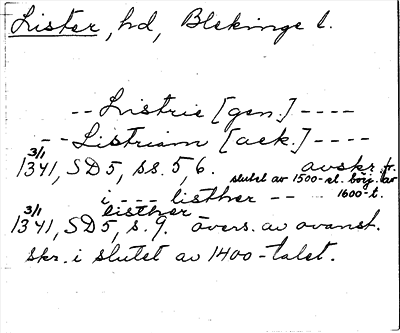 Lister, hd, Blekinge l.
-- Listrie [gen.] ----
-- Listriam [ack.] ----
3/1
1341, SD5, ss. 5, 6. avskr. fr.
slutet av 1500-el. börj. av
i --- listher -- 1600-t.
listher
3/1
1341, SD5, s. 9. övers. av ovanst.
skr. i slutet av 1400-talet.